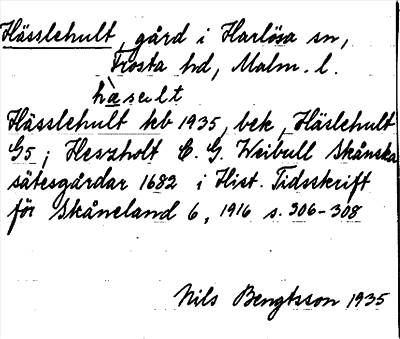 Hässlehult, gård i Harlösa sn,
Frosta hd, Malm. l.
hàsult
Hässlehult kb 1935, bek, Häslehult
G5; Heszholt C. G. Weibull Skånska
sätesgårdar 1682 i Hist. Tidsskrift
för Skåneland 6, 1916 s. 306-308
Nils Bengtsson 1935